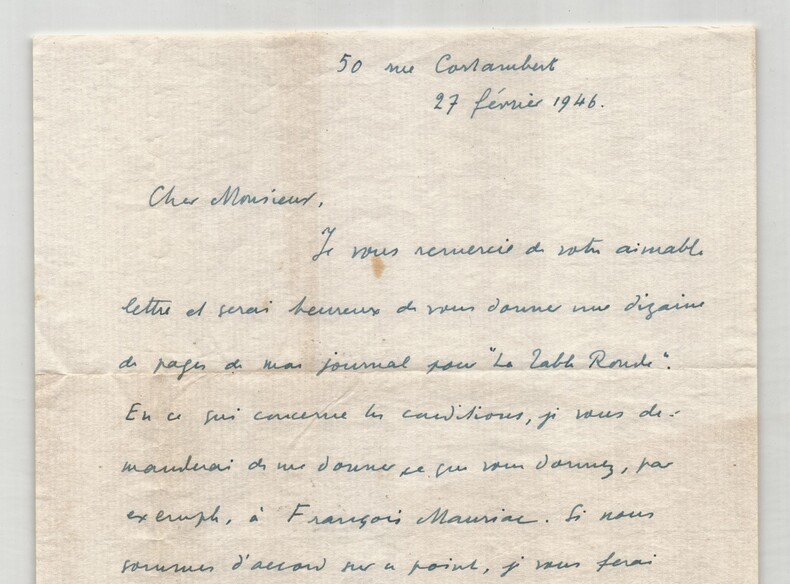 50 rue Cortambert
27 février 1946.
Cher Monsieur,
Je vous remercie de votre aimable
lettre et serai heureux de vous donner une dizaine
de pages de mon journal pour "La Table Ronde".
En ce qui concerne les conditions, je vous de-
manderai de me donner ce que vous donnez, par
exemple, à François Mauriac. Si nous
sommes d'accord sur ce point, je vous ferai